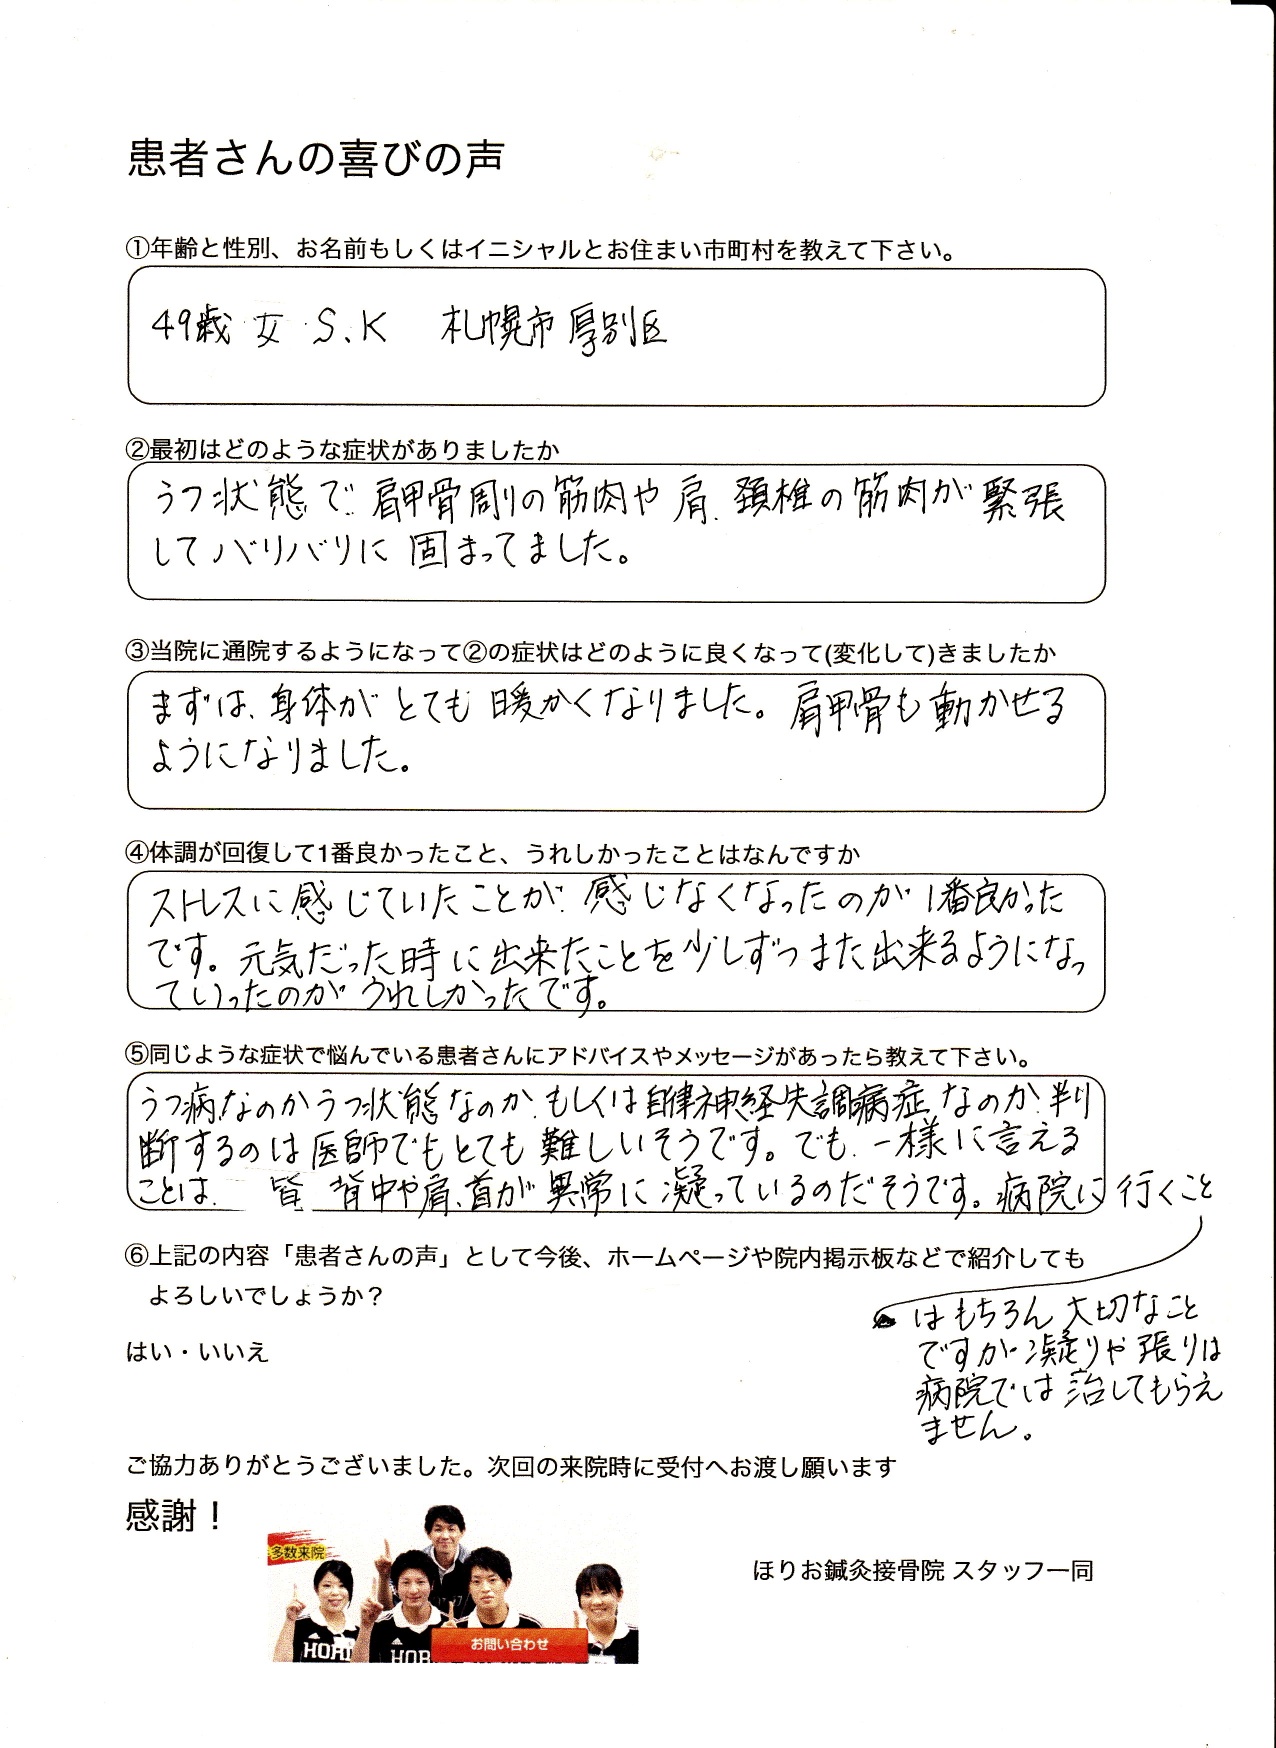 患者さんの喜びの声
①年齢と性別、お名前もしくはイニシャルとお住まい市町村を教えて下さい。
49歳 女 S.K 札幌市厚別区
②最初はどのような症状がありましたか
うつ状態で、肩甲骨周りの筋肉や肩、頚椎の筋肉が緊張
してバリバリに固まってました。
③当院に通院するようになって②の症状はどのように良くなって(変化して)きましたか
まずは、身体がとても暖かくなりました。肩甲骨も動かせる
ようになりました。
④体調が回復して1番良かったこと、うれしかったことはなんですか
ストレスに感じていたことが、感じなくなったのが1番良かった
です。元気だった時に出来たことを少しずつまた出来るようになっ
ていったのがうれしかったです。
⑤同じような症状で悩んでいる患者さんにアドバイスやメッセージがあったら教えて下さい。
うつ病なのかうつ状態なのか、もしくは自律神経失調病症なのか、判
断するのは医師でもとても難しいそうです。でも、一様に言える
ことは、皆、背中や肩、首が異常に凝っているのだそうです。病院に行くこと
はもちろん大切なこと
ですが、凝りや張りは
病院では治してもらえ
ません。
⑥上記の内容「患者さんの声」として今後、ホームページや院内掲示板などで紹介しても
よろしいでしょうか?
はい・いいえ
ご協力ありがとうございました。次回の来院時に受付へお渡し願います
感謝!
多数来院
HORI
HORI
お問い合わせ
ほりお鍼灸接骨院 スタッフ一同